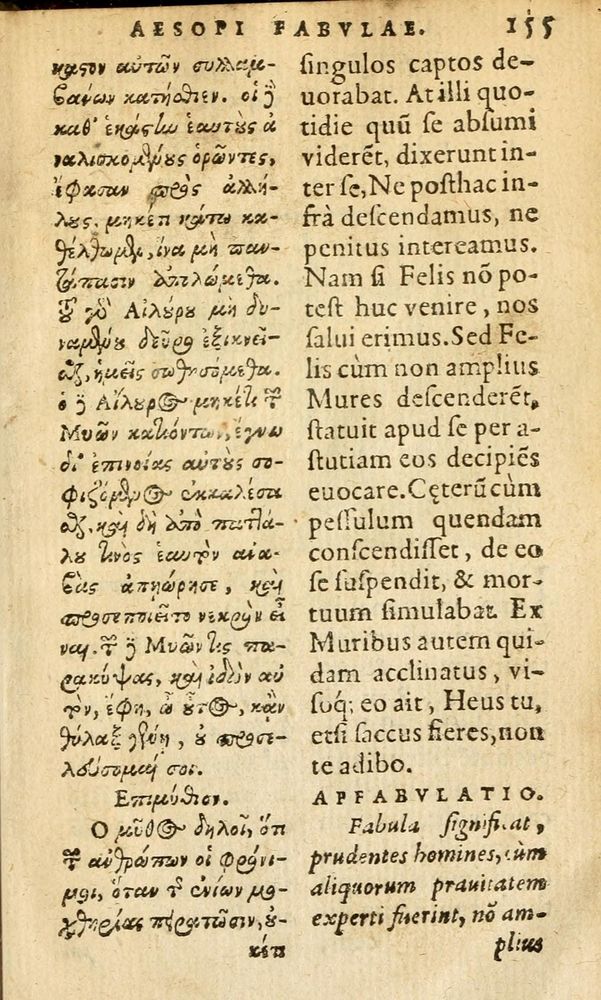 AESOPI FABVLAE. 155
καστον αὐτῶν συλλαμ-
βάνων κατήσθιεν. οἱ δὲ
καθ' ἑκάστην ἑαυτοὺς ἀ
ναλισκομένους ὁρῶντες,
ἔφασαν πρὸς ἀλλή-
λους. μηκέτι κάτω κα-
θέλθωμεν, ἵνα μὴ παν-
τάπασιν ἀπολώμεθα.
τοῦ γὰρ Αἰλούρου μὴ δυ-
ναμένου δεῦρο ἐξικνεῖ-
σθαι, ἡμεῖς σωθησόμεθα.
ὁ δὲ Αἴλουρος μηκέτι τῶν
Μυῶν κατιόντων, ἔγνω
δι' ἐπινοίας αὐτοὺς σο-
φιζόμενος ἐκκαλέσα
σθαι. καὶ δὴ ἀπὸ παττά-
λου τινὸς ἑαυτὸν ἀνα-
βὰς ἀπῃώρησε, καὶ
προσεποιεῖτο νεκρὸν εἶ
ναι. τῶν δὲ Μυῶν τις πα-
ρακύψας, καὶ ἰδὼν αὐ
τὸν, ἔφη, ὦ οὗτος, κἂν
θύλαξ γένῃ, οὐ προσε-
λεύσομαί σοι.
Επιμύθιον.
Ο μῦθος δηλοῖ, ὅτι
τῶν ἀνθρώπων οἱ φρόνι-
μοι, ὅταν τῆς ἐνίων μο-
χθηρίας πειραθῶσιν, οὐ-
κέτι
singulos captos de-
uorabat. At illi quo-
tidie quū se absumi
viderēt, dixerunt in-
ter se, Ne posthac in-
frà descendamus, ne
penitus intereamus.
Nam si Felis nō po-
test huc venire, nos
salui erimus. Sed Fe-
lis cùm non amplius
Mures descenderēt,
statuit apud se per a-
stutiam eos decipiēs
euocare. Cęterū cùm
pessulum quendam
conscendisset, de eo
se suspendit, & mor-
tuum simulabat. Ex
Muribus autem qui-
dam acclinatus, vi-
soq; eo ait, Heus tu,
etsi saccus fieres, non
te adibo.
AFFABVLATIO.
Fabula significat,
prudentes homines, cùm
aliquorum prauitatem
experti fuerint, nō am-
plius